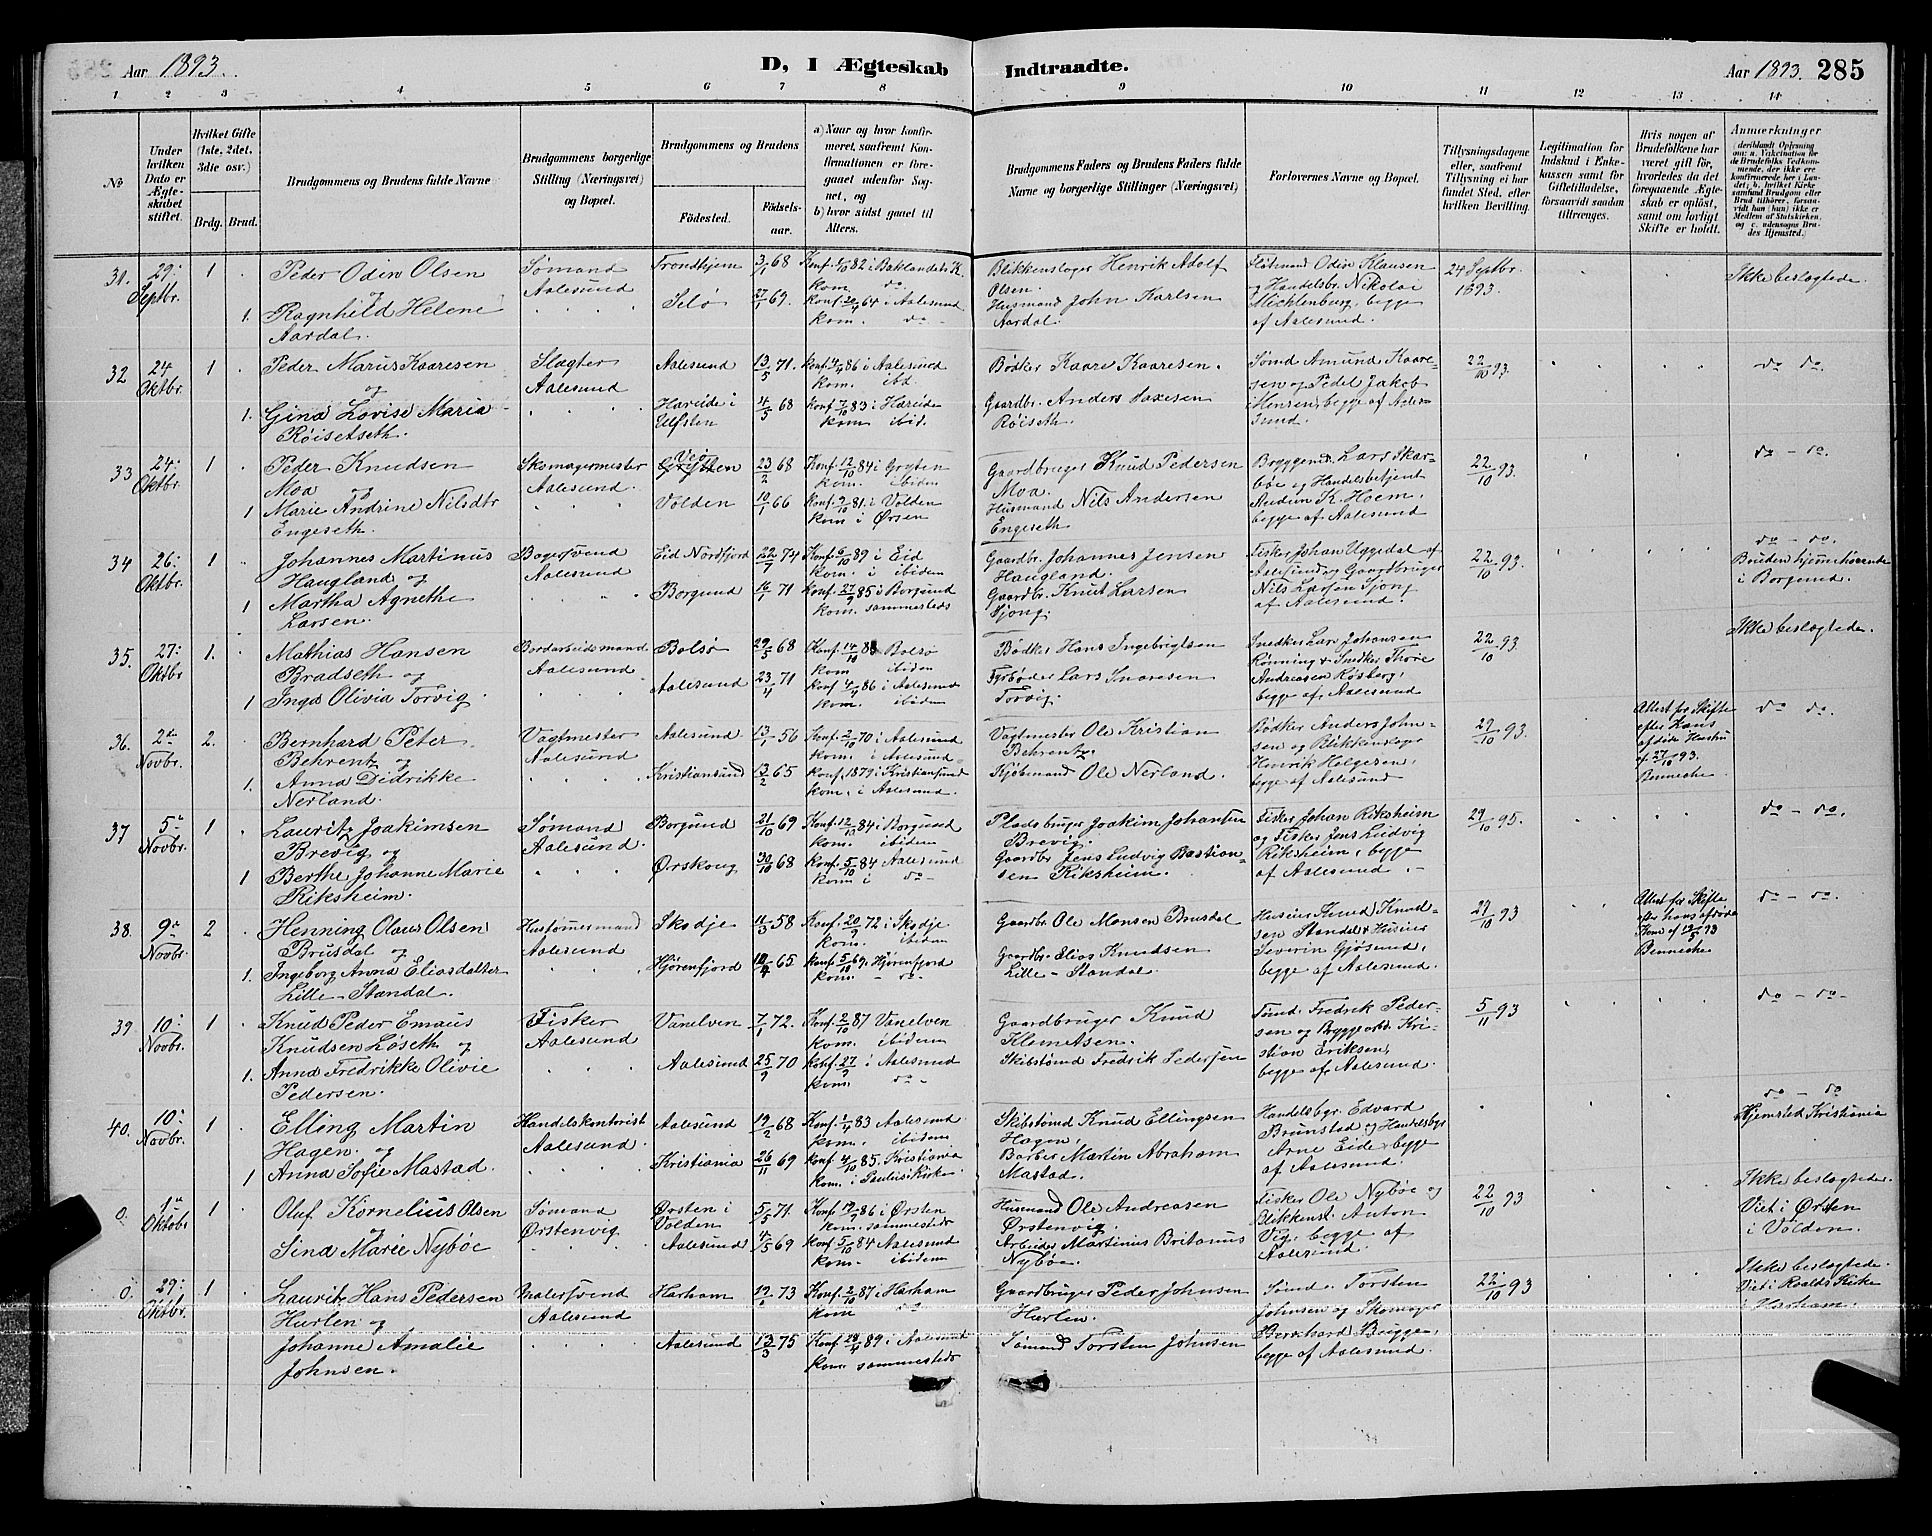 Aar 1893.
D, I Ægteskab Indtraadte.
Aar 1893. 285
1 2 3 4 5 6 7 8 9 10 11 12 13 14
No
Under hvilken Dato er Ægteskabet stiftet.
Hvilket Gifte (1ste, 2det, 3die osv.)
Brdg. Brud.
Brudgommens og Brudens fulde Navne
Brudgommens borgerlige Stilling (Næringsvei) og Bopæl.
Brudgommens og Brudens
Fødested.
Fødselsaar.
a) Naar og hvor konfirmeret, saafremt Konfirmationen er foregaaet udenfor Sognet, og
b) hvor sidst gaaet til Alters.
Brudgommens Faders og Brudens Faders fulde Navne og borgerlige Stillinger (Næringsvei)
Forlovernes Navne og Bopæl.
Tillysningsdagene eller, saafremt Tillysning ei har fundet Sted, efter hvilken Bevilling.
Legitimation for Indskud i Enkekassen samt for Giftetilladelse, forsaavidt saadan tiltrænges.
Hvis nogen af Brudefolkene har været gift før, hvorledes da det foregaaende Ægteskab er opløst, samt om lovligt Skifte er holdt.
Anmærkninger (deriblandt Oplysning om: a. Vakcination for de Brudefolks Vedkommende, der ikke ere konfirmerede her i Landet; b. hvilket Kirkesamfund Brudgom eller Brud tilhører, forsaavidt han (hun) ikke er Medlem af Statskirken, og c. udensogns Brudes Hjemsted.)
31. 29: Septbr. 1 Peder Odin Olsen og Sømand Aalesund Trondhjem 3/1 68 Konf. 1/10 82 i Baklandets K. kom. do. Blikkenslager Henrik Adolf Olsen. Odin Klausen og Handelsbr. Nikolai Mecklenburg, begge af Aalesund. 24 Septbr. 1893. Ikke beslægtede.
1. Ragnhild Helene Aardal. Selø 27/1 69. Konf. 64 i Aalesund kom. do - Husmand John Karlsen Aardal.
32 24 Oktbr. 1 Peder Marius Kaaresen og Slagter Aalesund Aalesund 13/5 71. konf. 86 i Aalesund kom. ibd. Bødker Kaare Kaaresen. Sømd. Amund Kaaresen og Pedel Jakob Hensen, begge af Aalesund. 22/10 93. do do.
1. Gina Lovise Maria Røisetseth. Hareide i Ulfsten 4/5 68 konf. 7/10 83 i Hareide kom ibid. Gaardbr. Anders Røiseth.
33 24: Oktbr. 1 Peder Knudsen Moa og Skomagermester Aalesund. Grytten 23/2 68 Konf. 12/10 84 i Gryten kom. ibiden Gaardbruger Knud Pedersen Moa. Lars Skarbøe og Handelsbetjent Andreas K. Hoem. begge af Aalesund 22/10 93. do - do.
1 Marie Andrine Nilsdtr Engeseth. Volden 10/1 66 Konf. 9/10 81. i Volden kom i Ørsen Husmand Nils Andersen Engeseth
34 26: Oktbr. 1 Johannes Martinus Haugland og Bagersvend Aalesund Eid Nordfjord 22/7 74 Konf. 6/10 89 i Eid kom. i ibiden Gaardbr. Johannes Jensen Haugland. Fisker Johan Uggedal af Aalesund og Gaardbruger Nils Larsen Sjong af Aalesund. 22/10 93. do - do. Bruden hjemmehørende i Borgund.
1 Martha Agnethe Larsen. Borgund 16/1 71 Konf. 27/9 85 i Borgund kom. sammesteds Gaardbr. Knut Larsen Sjong.
35. 27: Oktbr 1. Mathias Hansen Bradseth og Bordarbeidsmand Aalesund Bolsø 29/5 68 Konf. 14/10 83 Bolsø kom ibiden Bødker Hans Ingebrigtsen Snedker Lars Johansen Rønning & Snedker Thore Andreasen Røsberg, begge af Aalesund 22/10 93. Ikke beslægtede.
1 Inga Olivia Torvig. Aalesund 23/4 71 konf. 4/7 86 i Aalesund kom. ibiden Fyrbøder Lars Torvig.
36. 2den Novbr. 2. Bernhard Peter Behrentz og Vagtmester Aalesund Aalesund 13/1 56 Konf. 2/10 70 i Aalesund kom. i Aalesund. Vagtmester Ole Kristian Behrentz. Bødker Anders Johnsen og Blikkenslager Henrik Helgesen, begge af Aalesund 29/10 93. Attest fr. Skifte efter Hans afdøde Hustru af 27/10 93. Benneche do do.
1. Anna Didrikke Nerland. Kristiansund 13/2 65 konf. 1879 i Kristiansund kom. i Aalesund. Kjøbmand Ole Nerland.
37 5te Novbr. 1 Lauritz Joakimsen Brevig og Sømand Aalesund. Borgund 21/10 69 Konf. 12/10 84 i Borgund kom. ibiden Pladsbruger Joakim Johansen Brevig. Fisker Johan Riksheim og Fisker Jens Ludvig Riksheim, begge af Aalesund. 29/10 95. do - do.
1 Berthe Johanne Marie Riksheim. Ørskoug 30/10 68 konf. 5/10 84 Aalesund kom i do - Gaardbr Jens Ludvig Bastiansen Riksheim.
38. 9de Novbr. 2 Henning Olaus Olsen Brusdal og Hustømmermand Aalesund Skodje 11/3 58 Konf. 20/9 72 i Skodje kom. ibiden Gaardbr. Ole Monsen Brusdal Husier Knud Knudsen Standal & Husier Severin Gjøsund, begge af Aalesund. 29/10 93 Attest for Skifte efter hans afdøde Kone af 12/5 93 Benneche do - do.
1. Ingeborg Anna Eliasdatter Lille-Standal. Hjørenfjord 65 konf. 5/10 Hjørenfjord kom. - do - Gaardbr. Elias Knudsen Lille-Standal.
39. 10: Novbr. 1 Knud Peder Emaus Knudsen Løseth og Fisker Aalesund Vanelven 7/1 72. Konf. 2/10 87 Vanelven kom. ibidem Gaardbruger Knud Klemetsen. Fredrik Pedersen og Kristian Eriksen, begge af Aalesund. 5/11 93 do - do -
1. Anna Fredrikke Olivie Pedersen. Aalesund 25/9 70 konf. 27/9 i Aalesund kom. do - Skibstømd. Fredrik Pedersen
40. 10: Novbr. 1 Elling Martin Hagen og Handelskontorist Aalesund. Aalesund 19/2 68 Konf. 1/4 83 Aalesund kom. ibidem Skibstømd Knud Ellingsen Hagen. Handelsbgr. Edvard Brunstad og Handelsbgr Arne Eide, begge af Aalesund. do - do Hjemsted Kristiania
1 Anna Sofie Mastad. Kristiania 26/11 69 konf. 4/10 85. Kristiania kom. i Paulus Kirke. Barber Martin Abraham Mastad.
0. 1te Oktobr 1 Olaf Kornelius Olsen og Sømand Ørstenvig Ørsten i Volden 5/5 71 Konf. 86 i Ørsten kom. sammesteds Husmand Ole Andreasen Ørstenvig. Fisker Ole Nybøe og Blikkensl. Anton Vig, begge af Aalesund. 22/10 93 Ikke beslægtede. Viet i Ørsten i Volden.
Sina Marie Nybøe Aalesund 4/5 69 konf. 5/10 84 Aalesund kom. ibidem Arbeider Martinus Britanus Nybøe.
0. 29: Oktbr. 1 Lauritz Hans Pedersen Hurlen og Malersvend Aalesund Harham 19/ 73 Konf. 2/10 87 i Harham kom do Gaardbruger Peder Johnsen Hurlen. Sømd. Torsten Johnsen og Skomager Bernhard Brugge, begge af Aalesund. 22/10 93 Ikke beslægtede. Viet i Roalds Kirke i Harham.
Johanne Amalie Johnsen. Aalesund 13/3 75 Konf. 89 i Aalesund kom. sammesteds Sømand Torsten Johnsen